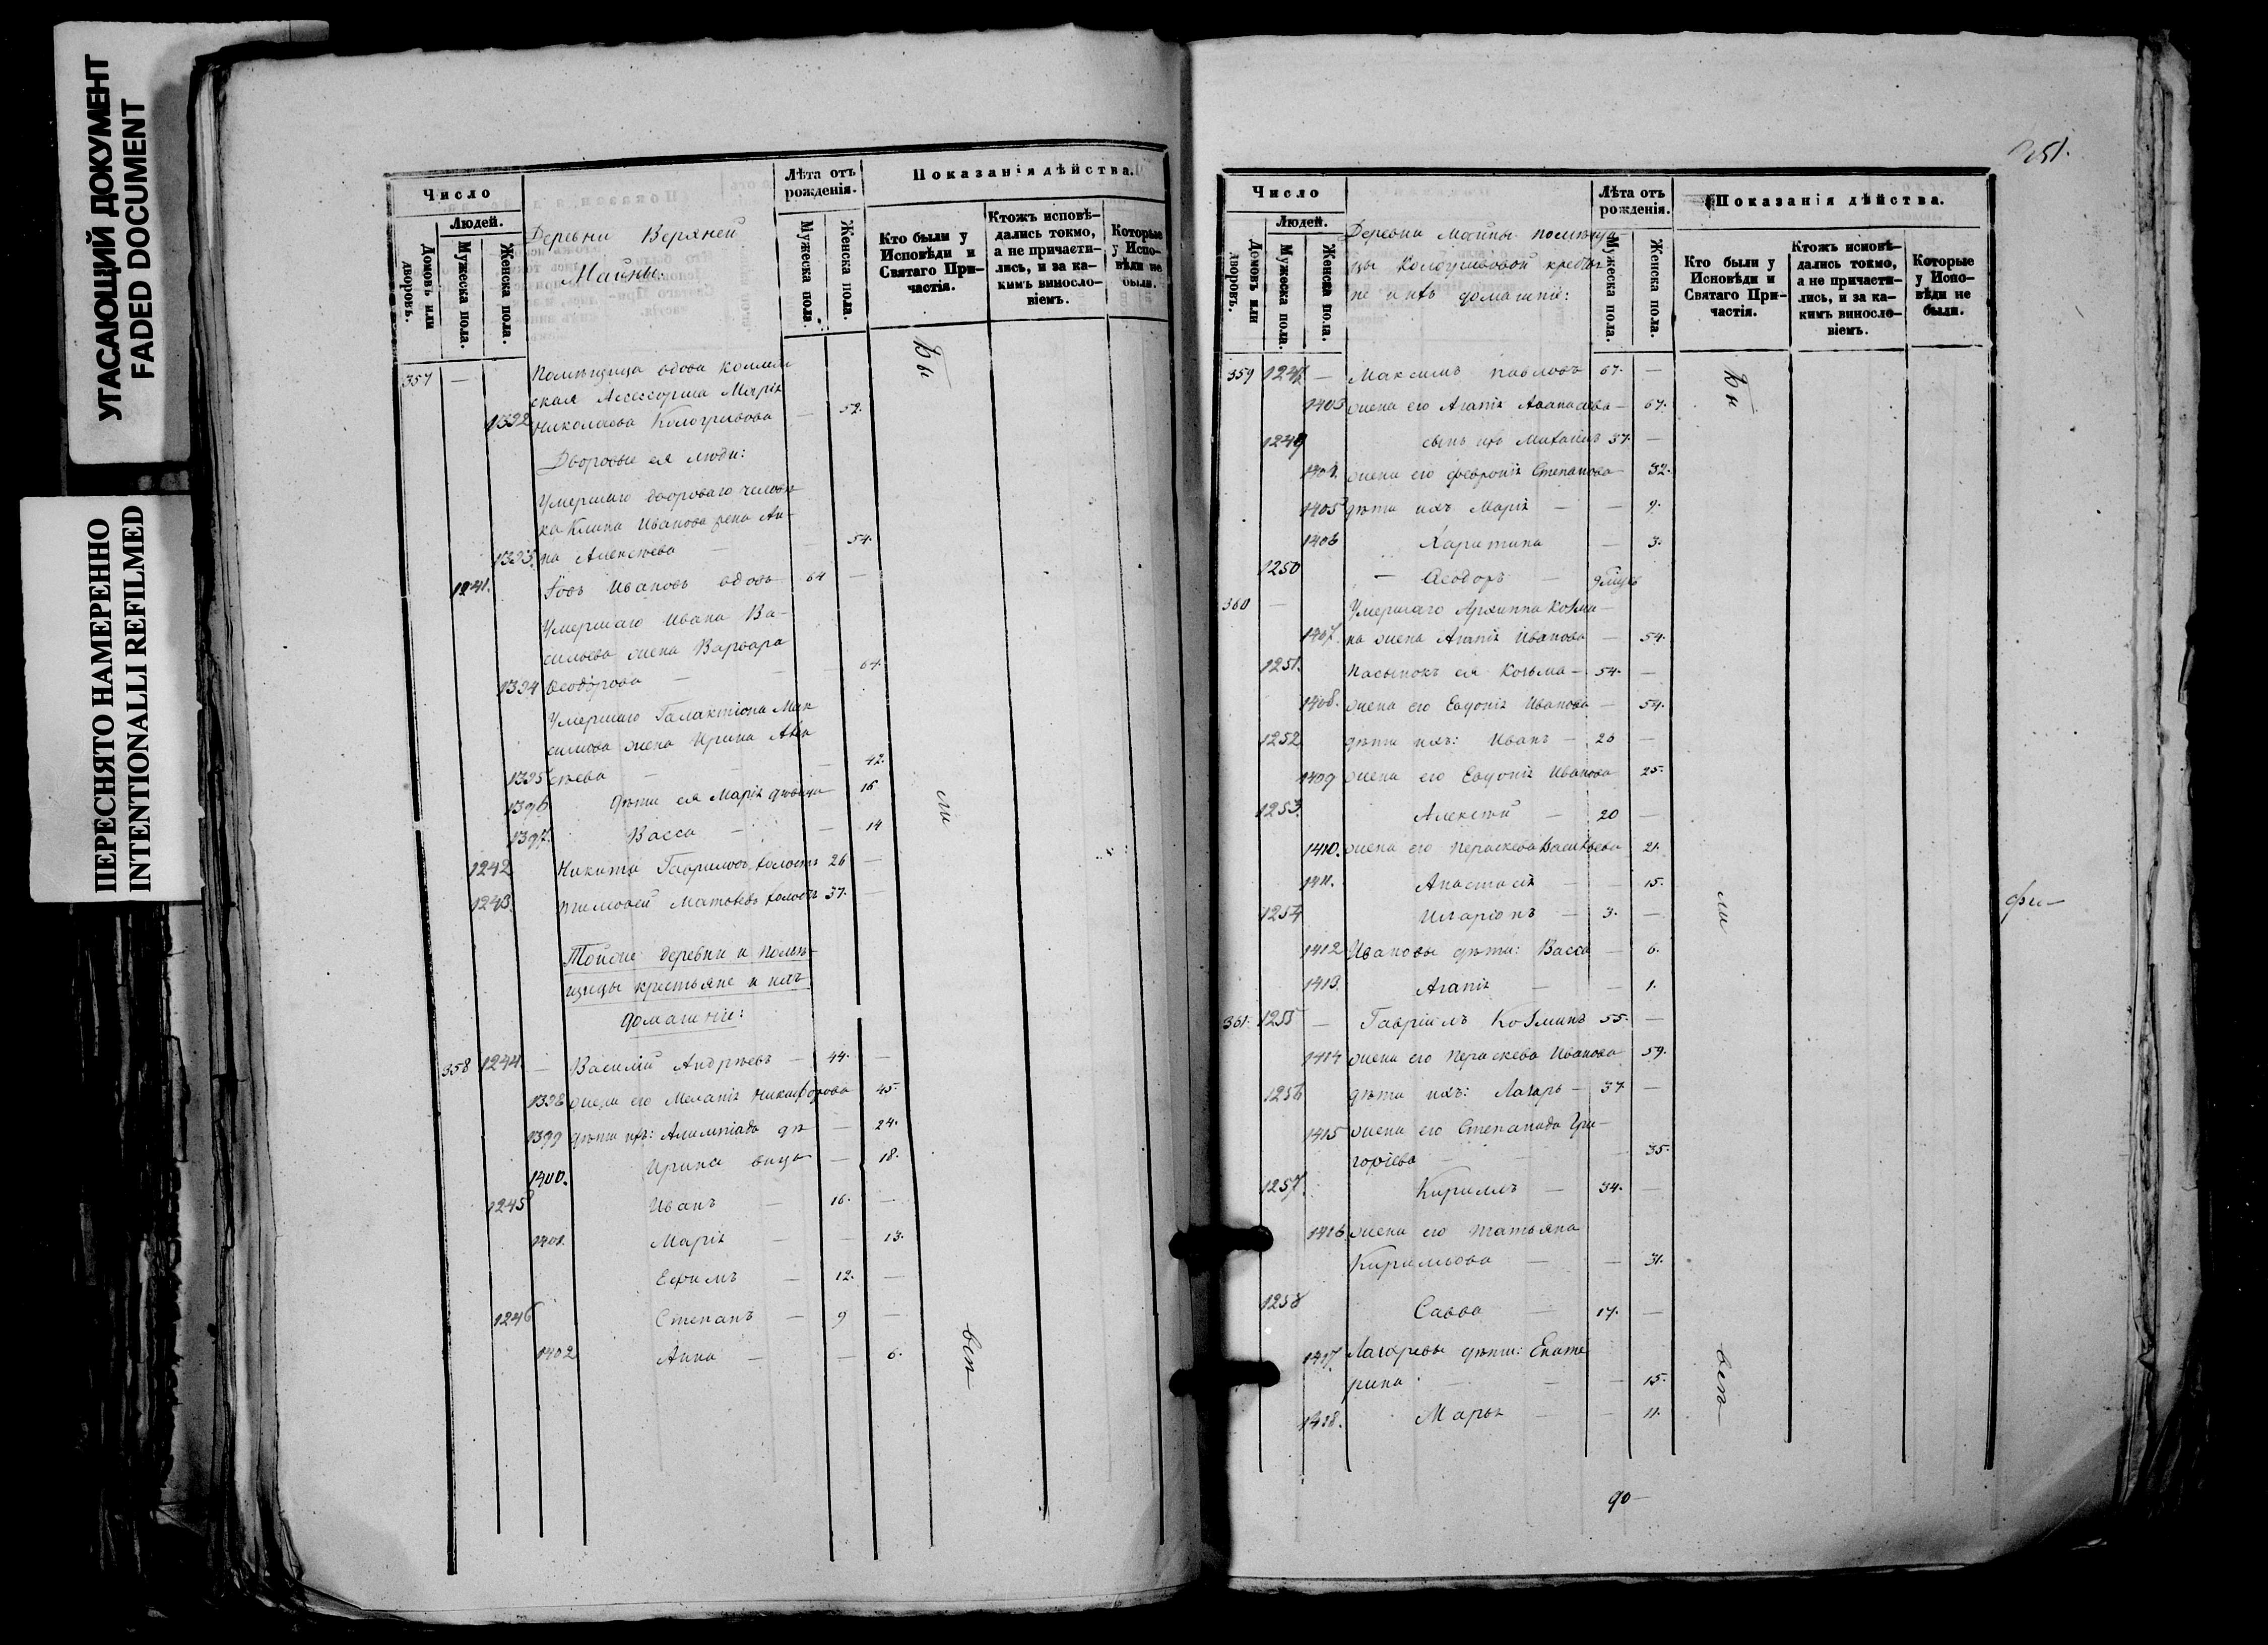 УГАСАЮЩИЙ ДОКУМЕНТ
FADED DOCUMENT
ПЕРЕСНЯТО НАМЕРЕННО
INTENTIONALLI REFILMED
Число
Людей.
Домовъ или дворовъ.
Мужеска пола.
Женска пола.
Деревни Верхней
Майны.
Лѣта отъ рожденія.
Мужеска пола.
Женска пола.
Показанія дѣйства.
Кто были у Исповѣди и Святаго При-
частія.
Ктожъ исповѣ-
дались токмо,
а не причасти-
лись, и за ка-
кимъ виносло-
віемъ.
Которые
у Испо-
вѣди не
были.
357 —
Помѣщица вдова коллеж
ская Ассесорша Марія
1392 Николаева Кологривова — 52.
Дворовые ея люди:
Умершаго двороваго человѣ
ка Клима Иванова жена Ан-
1393. на Алексѣева — 54.
1241. Іовъ Ивановъ вдовъ 64 —
Умершаго Ивана Ва-
сильева жена Варвара
1394 Ѳеодорова — — 64.
Умершаго Галактіона Мак
симова жена Ирина Алек
1395 сѣева — — 42.
1396 дѣти ея Марія дѣвица 16
1397. Васса — — 14
1242 Никита Гавриловъ холостъ 26 —
1243. Тимоѳей Матвѣевъ холостъ 37. —
Тойже деревни и помѣ-
щицы крестьяне и ихъ
домашніе:
358 1244. — Василій Андрѣевъ — 44. —
1398 жена его Меланія Никифорова 45.
1399 дѣти ихъ: Алимпіада дѣ — 24.
1400. Ирина вицы — 18.
1245 Иванъ — 16. —
1401. Марія — — 13.
Ефимъ — 12. —
1246 Степанъ — 9 —
1402 Анна — — 6.
Бы
ли
всѣ
251.
Число
Людей.
Домовъ или дворовъ.
Мужеска пола.
Женска пола.
Деревни Майны помѣщи-
цы Кологривовой крестья
не и ихъ домашніе:
Лѣта отъ рожденія.
Мужеска пола.
Женска пола.
Показанія дѣйства.
Кто были у
Исповѣди и
Святаго При-
частія.
Ктожъ исповѣ-
дались токмо,
а не причасти-
лись, и за ка-
кимъ виносло-
віемъ.
Которые
у Испо-
вѣди не
были.
359 1247 — Максимъ Павловъ 67. —
1403 жена его Агапія Аѳанасьева — 67.
1249 сынъ ихъ Михаилъ 37. —
1404. жена его Февронія Степанова — 32.
1405 дѣти ихъ Марія — — 9.
1406 Харитина — 3.
1250 — Ѳеодоръ —
360 — Умершаго Архиппа Козми-
1407. на жена Агапія Иванова — 54.
1251. Пасынокъ ея Козьма — 54. —
1408. жена его Евдокія Иванова — 54.
1252 дѣти ихъ: Иванъ — 26 —
1409 жена его Евдокія Иванова 25.
1253. Алексѣй — 20 —
1410. жена его Параскева Васильева 21.
1411. Анастасія — — 15.
1254 Иларіонъ — 3. —
1412 Ивановы дѣти: Васса — 6.
1413. Агапія — — 1.
361. 1255 — Гавріилъ Козминъ 55. —
1414 жена его Параскева Иванова 59.
1256 дѣти ихъ: Лазарь — 37 —
1415 жена его Степанида Гри-
горьева — — — 35.
1257. Кириллъ — 34. —
1416 жена его Татьяна
Кириллова — — 31.
1258 Савва — 17. —
1417. Лазаревы дѣти: Екате
рина — — — 15.
1418. Марья — — 11.
Бы
ли
всѣ
фи—
90—